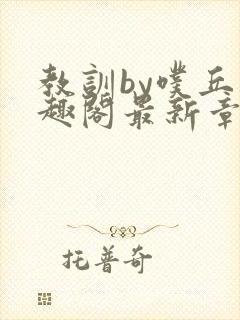 教訓by噗乒
趣閣最新章
托普奇